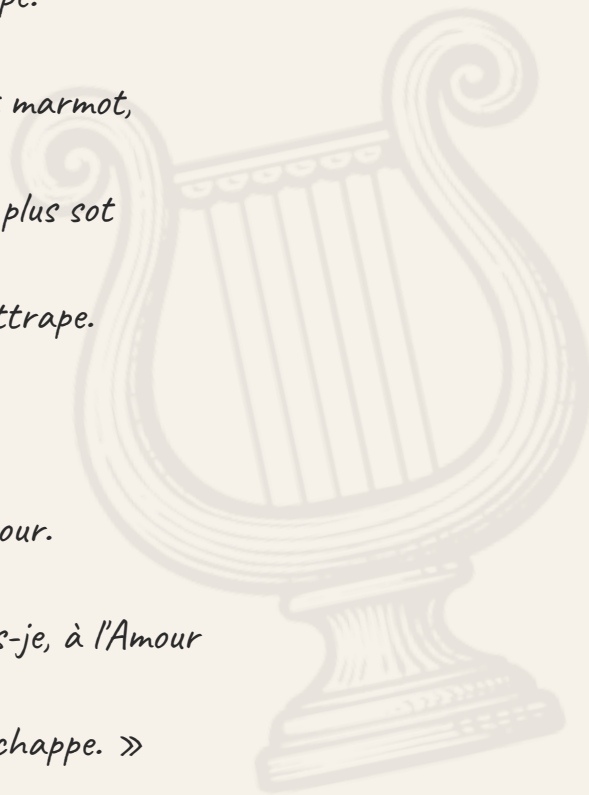 pe.
marmot,
plus sot
ttrape.
our.
s-je, à l'Amour
chappe. »